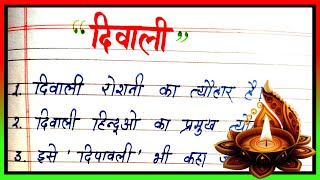 “दिवाली”
1. दिवाली रोशनी का त्यौहार है।
2. दिवाली हिन्दुओ का प्रमुख
3. इसे 'दिपावली' भी कहा